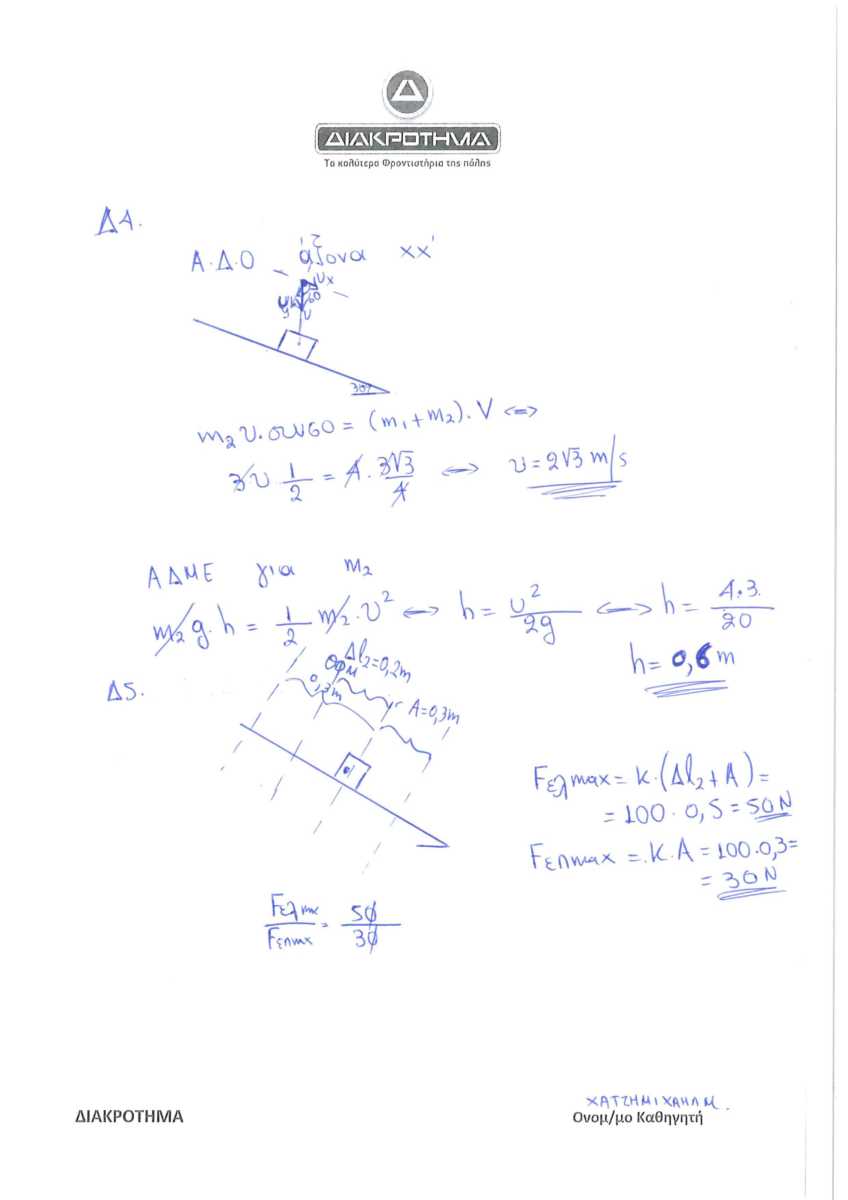 Δ
ΔΙΑΚΡΟΤΗΜΑ
Τα καλύτερα Φροντιστήρια της πόλης
Δ4.
Α.Δ.Ο άξονα xx'
υx
60
υy
υ
30°
m₂υ·συν60 = (m₁+m₂)·V ⟺
3υ·1/2 = 4·3√3/4 ⟺ υ=2√3 m/s
ΑΔΜΕ για m₂
m₂g·h = 1/2 m₂·υ² ⟺ h = υ²/2g ⟺ h = 4·3/20
h = 0,6 m
Δ5.
Δl₂=0,2m
0,3m
A=0,3m
Fελmax = K·(Δl₂+A) =
= 100·0,5 = 50N
Fεπmax = K·A = 100·0,3=
= 30N
Fελmax/Fεπmax = 50/30
ΧΑΤΖΗΜΙΧΑΗΛ Μ.
ΔΙΑΚΡΟΤΗΜΑ Ονομ/μο Καθηγητή